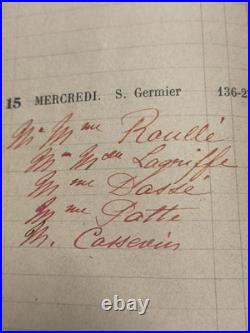 15 MERCREDI. S. Germier 136-2
Mr Mme Roullé
Mr Mme Lagriffe
Mme Dassé
Mme Patte
M. Cassevin